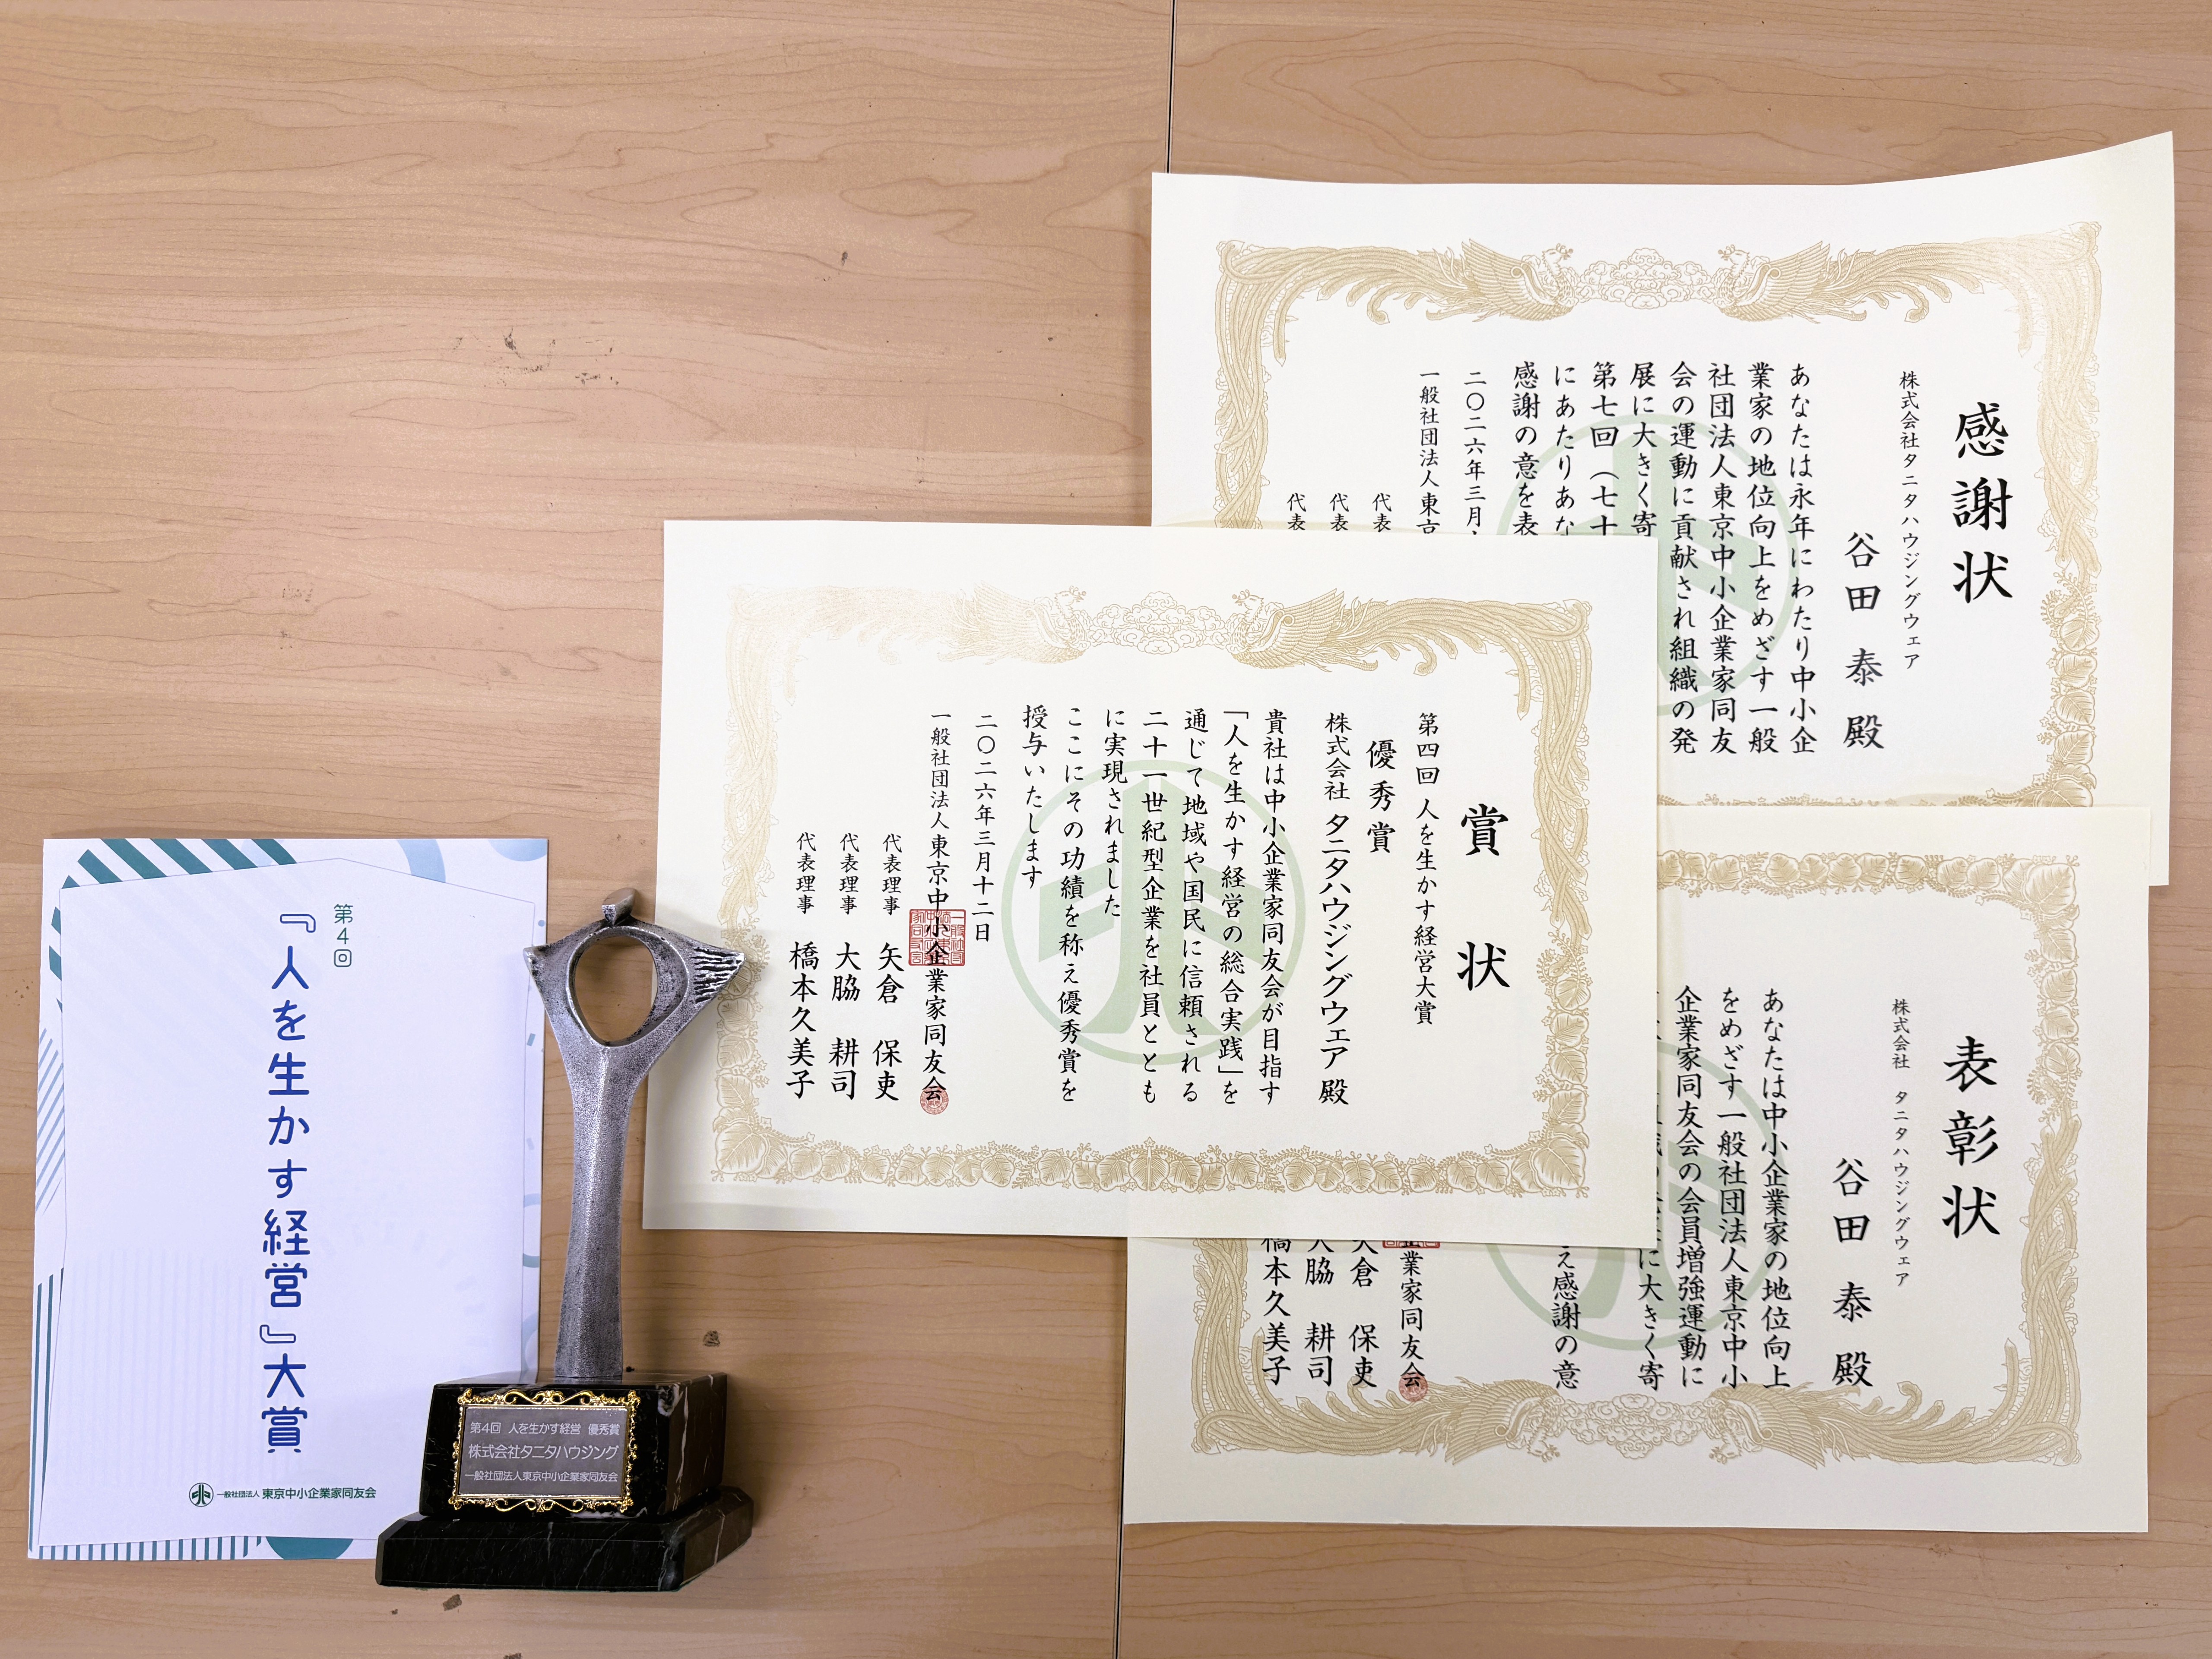 感謝状
株式会社タニタハウジングウェア
谷田 泰 殿
あなたは永年にわたり中小企
業家の地位向上をめざす一般
社団法人東京中小企業家同友
会の運動に貢献され組織の発
展に大きく寄
第七回(七十
にあたりあな
感謝の意を表
二〇二六年三月
一般社団法人東京
代表
代表
代表
賞状
第四回 人を生かす経営大賞
優秀賞
株式会社 タニタハウジングウェア 殿
貴社は中小企業家同友会が目指す
「人を生かす経営の総合実践」を
通じて地域や国民に信頼される
二十一世紀型企業を社員ととも
に実現されました
ここにその功績を称え優秀賞を
授与いたします
二〇二六年三月十二日
一般社団法人東京中小企業家同友会
代表理事 矢倉 保吏
代表理事 大脇 耕司
代表理事 橋本久美子
表彰状
株式会社 タニタハウジングウェア
谷田 泰 殿
あなたは中小企業家の地位向上
をめざす一般社団法人東京中小
企業家同友会の会員増強運動に
に大きく寄
え感謝の意
企業家同友会
矢倉 保吏
大脇 耕司
橋本久美子
第4回
『人を生かす経営』大賞
一般社団法人 東京中小企業家同友会
第4回 人を生かす経営 優秀賞
株式会社タニタハウジング
一般社団法人東京中小企業家同友会